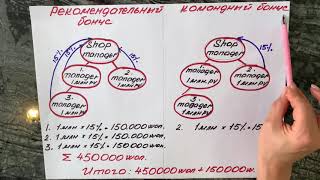 Рекомендательный бонус
Командный бонус
Shop manager
15%
15%
1. manager 1 млн. PV
2. manager 1 млн. PV
3. manager 1 млн. PV
1. 1 млн × 15% = 150.000 won.
2. 1 млн × 15% = 150.000 won.
3. 1 млн × 15% = 150000 won.
Σ 450000 won.
Shop manager
15%
1. manager 1 млн. PV
2. manager 1 млн. PV
3. manager 1 млн. PV
2. 1 млн × 15% = 15
Итого: 450000 won + 150000